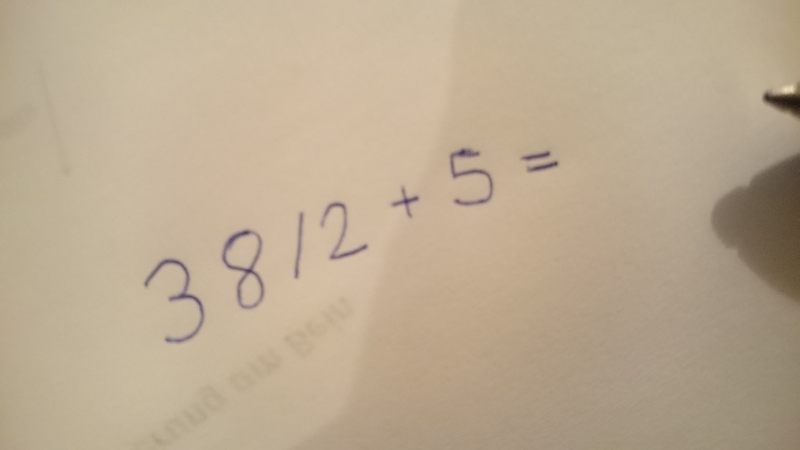 38/2 + 5 =